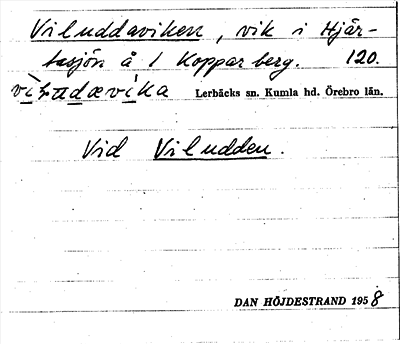 Viluddaviken, vik i Hjär-
tasjön å 1 Kopparberg. 120.
Lerbäcks sn. Kumla hd. Örebro län.
Vid Viludden.
DAN HÖJDESTRAND 1958